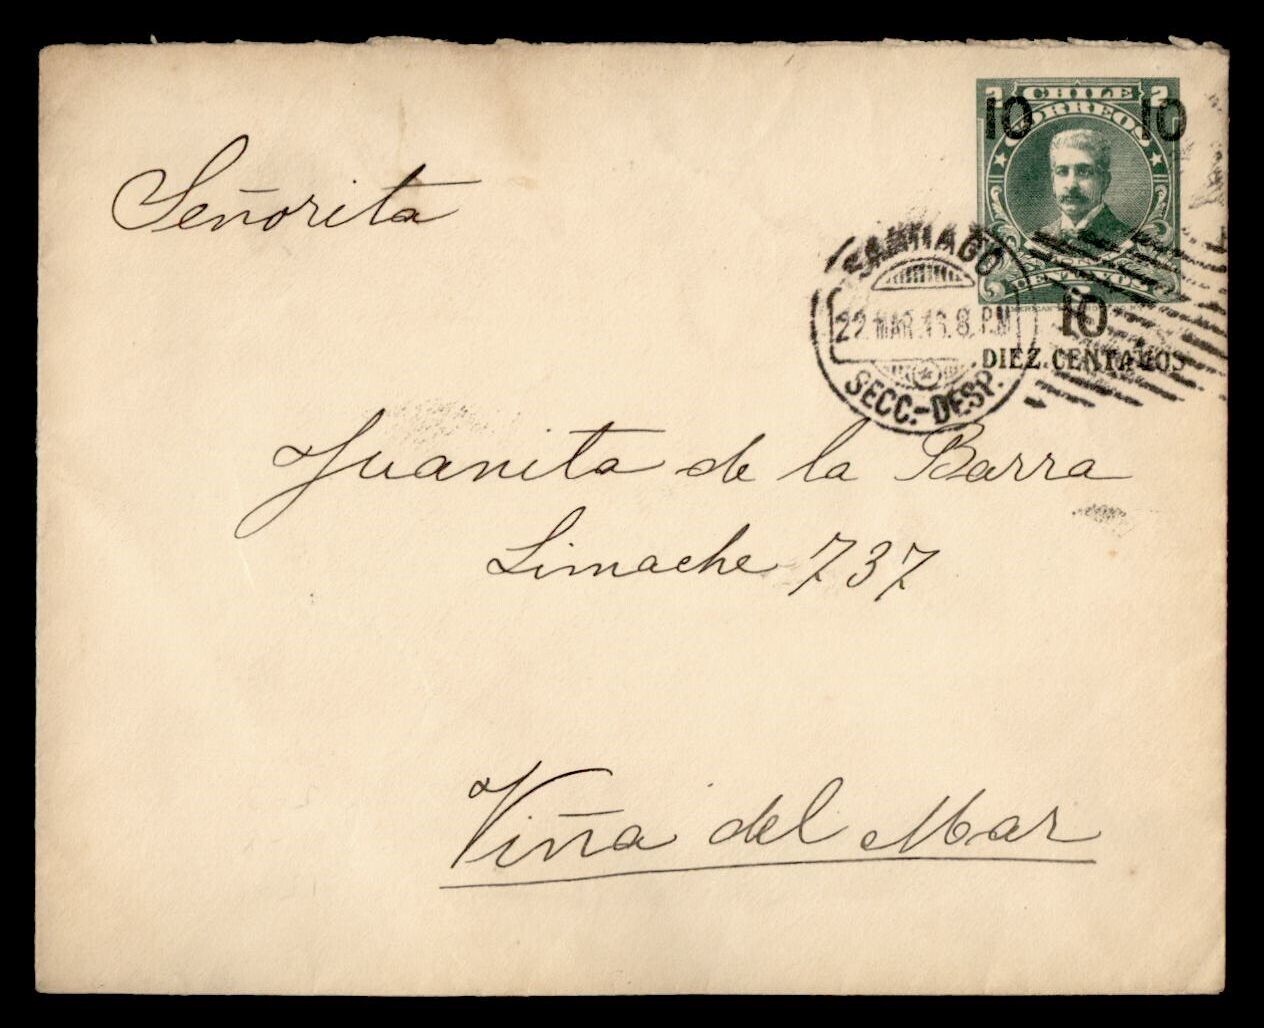 2 CHILE 2
CORREOS
10 10
10
DIEZ CENTAVOS
SANTIAGO
22 MAR. 8 P.M
SECC.-DESP.
Señorita
Juanita de la Barra
Limache 737
Viña del Mar